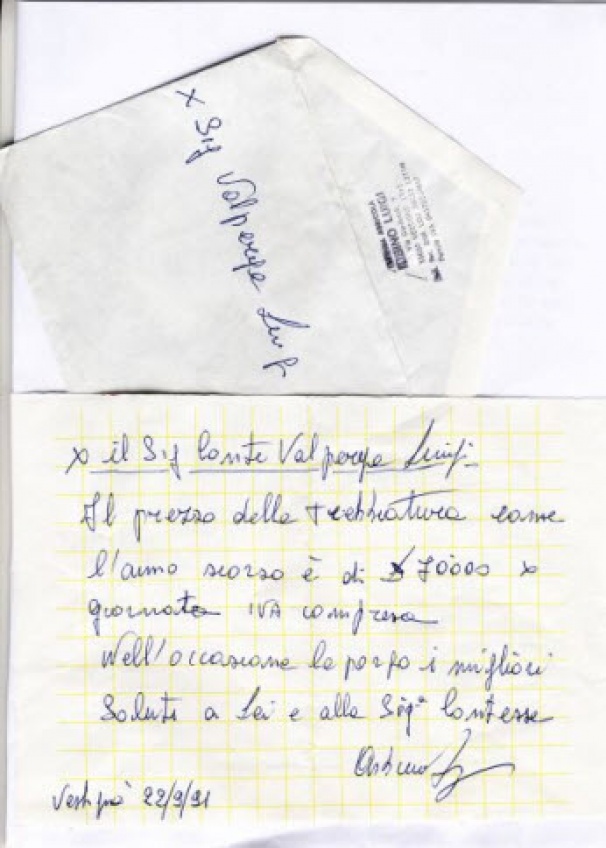 x Sig Valperga Luigi
LUIGI
x il Sig Conte Valperga Luigi
Il prezzo della trebbiatura come
l'anno scorso è di £ 70000 x
giornata IVA compresa
Nell'occasione le porgo i migliori
Saluti a Lei e alla Sig.ª Contessa
22/9/91